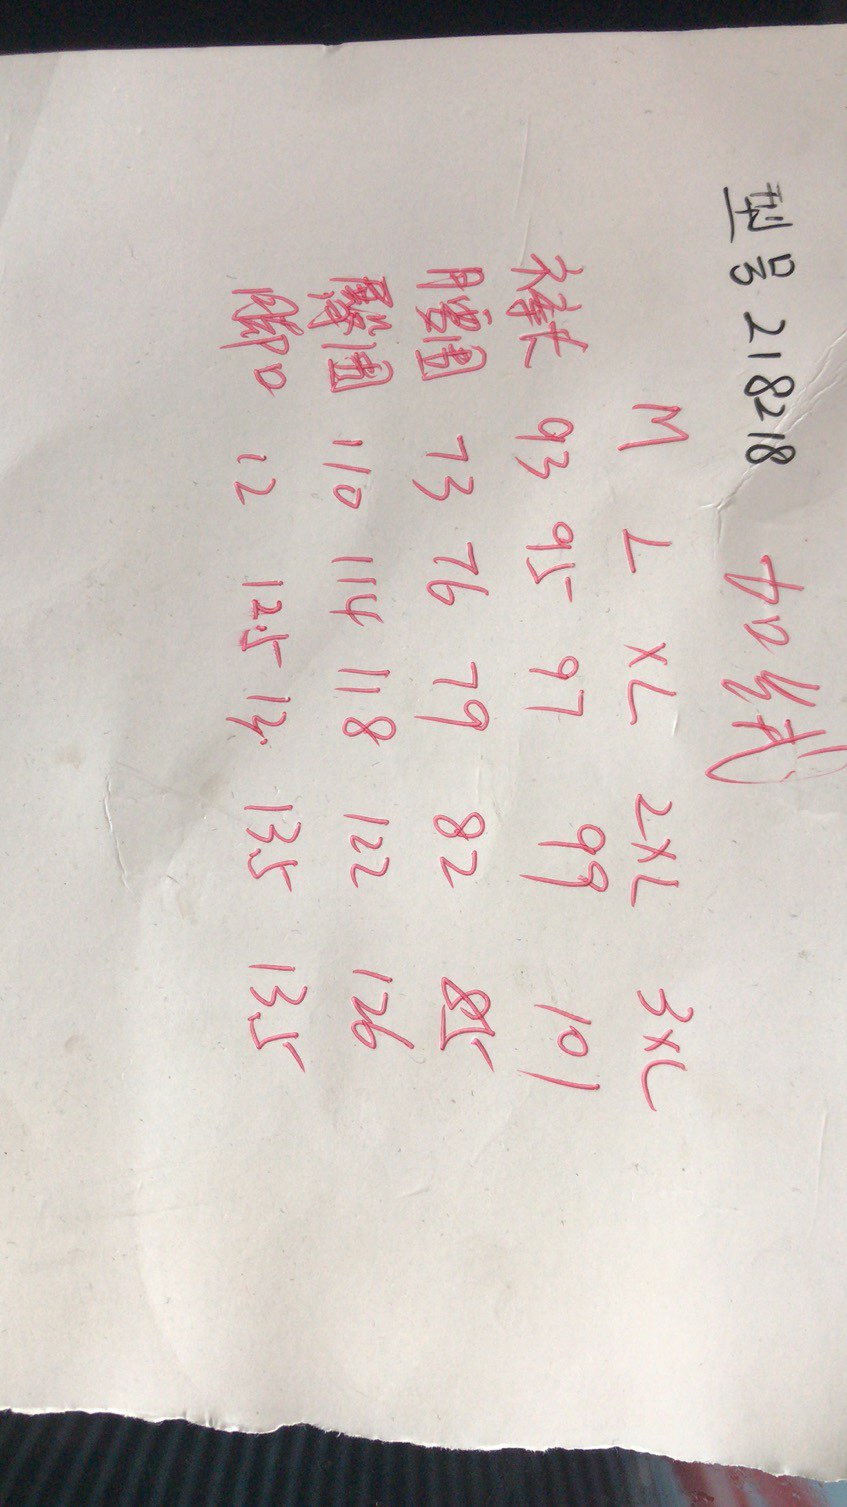 型号 218218 加绒
M L XL 2XL 3XL
裤长 93 95 97 99 101
腰围 73 76 79 82 85
臀围 110 114 118 122 126
脚口 12 12.5 13 13.5 13.5